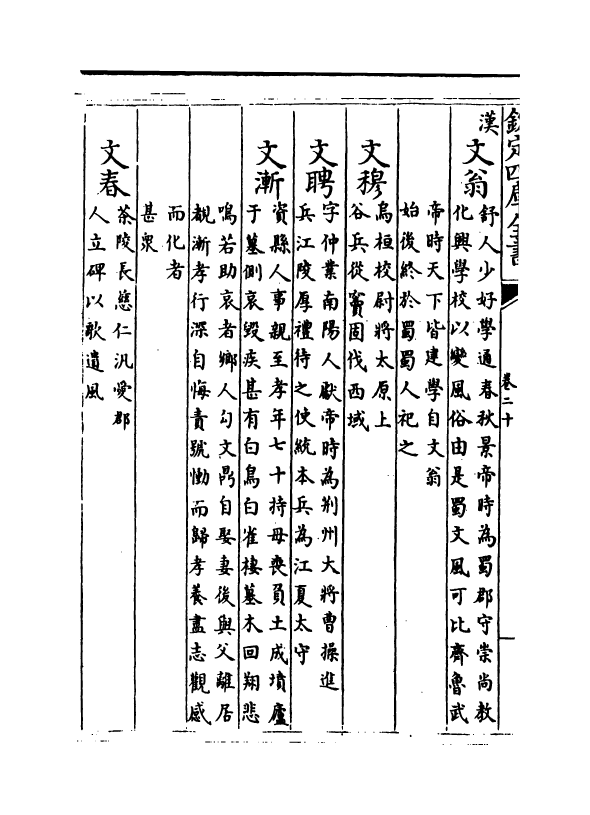 欽定四庫全書
卷二十
漢
文翁
舒人少好學通春秋景帝時為蜀郡守崇尚教
化興學校以變風俗由是蜀文風可比齊魯武
帝時天下皆建學自文翁
始後終於蜀蜀人祀之
文穆
烏桓校尉將太原上
谷兵從竇固伐西域
文聘
字仲業南陽人獻帝時為荆州大將曹操進
兵江陵厚禮待之使統本兵為江夏太守
文漸
資縣人事親至孝年七十持母喪負土成墳廬
于墓側哀毀疾甚有白鳥白雀棲墓木回翔悲
鳴若助哀者鄉人勾文鼎自娶妻後與父離居
覩漸孝行深自悔責號慟而歸孝養盡志觀感
而化者
甚衆
文春
茶陵長慈仁汎愛郡
人立碑以歌遺風